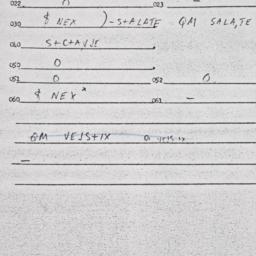 022 0 023 -
030 $ NEX )-S+ALATE QM SALA,TE
040 S+C+A,VIE
050 0
051 0 052 0
060 $ NEX* 061 -
QM VEIS+IX
-